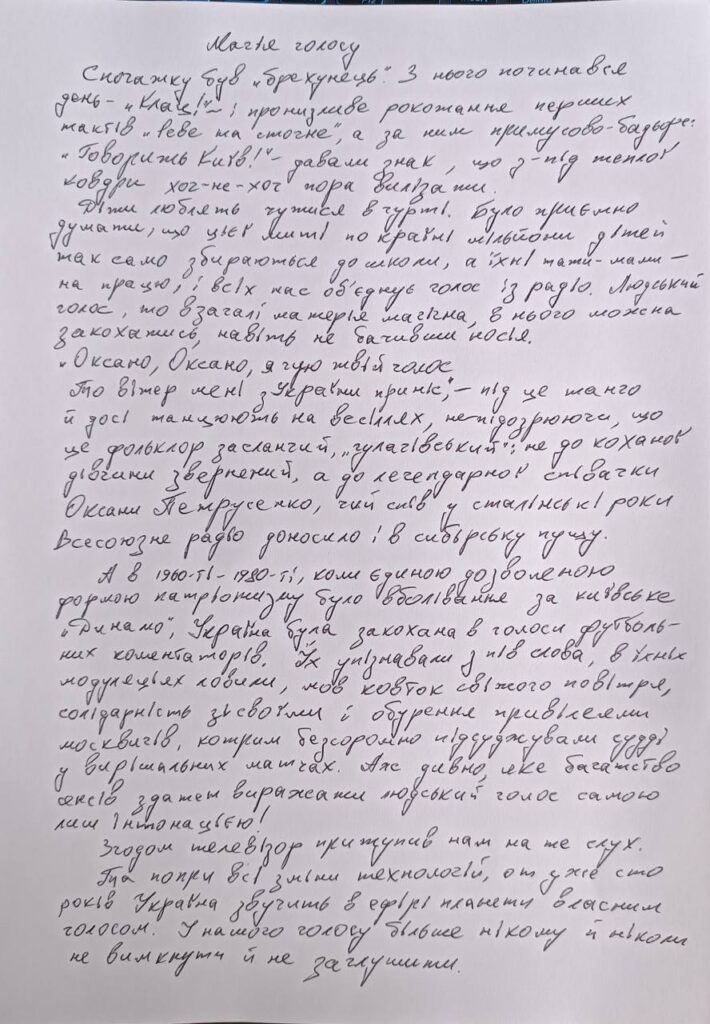 Магія голосу
Спочатку був „брехунець". З нього починався
день – „Клац!" – і пронизливе рокотання перших
тактів „Реве та стогне", а за ним примусово-бадьоре:
„Говорить Київ!" – давали знак, що з-під теплої
ковдри хоч-не-хоч пора вилізати.
Діти люблять чутися в гурті. Було приємно
думати, що цієї миті по країні мільйони дітей
так само збираються до школи, а їхні тати-мами –
на працю, і всіх нас об'єднує голос із радіо. Людський
голос, то взагалі матерія магічна, в нього можна
закохатись, навіть не бачивши носія.
„Оксано, Оксано, я чую твій голос
То вітер мені з України приніс", – під це танго
й досі танцюють на весіллях, не підозрюючи, що
це фольклор засланчий, „гулагівський": не до коханої
дівчини звернений, а до легендарної співачки
Оксани Петрусенко, чий спів у сталінські роки
Всесоюзне радіо доносило і в сибірську пущу.
А в 1960-ті – 1980-ті, коли єдиною дозволеною
формою патріотизму було вболівання за київське
„Динамо", Україна була закохана в голоси футболь-
них коментаторів. Їх упізнавали з пів слова, в їхніх
модуляціях ловили, мов ковток свіжого повітря,
солідарність зі своїми і обурення привілеями
москвичів, котрим безсоромно підсуджували судді
у вирішальних матчах. Аж дивно, яке багатство
сенсів здатен виражати людський голос самою
лиш інтонацією!
Згодом телевізор притупив нам на те слух.
Та попри всі зміни технологій, от уже сто
років Україна звучить в ефірі планети власним
голосом. І нашого голосу більше нікому й ніколи
не вимкнути й не заглушити.